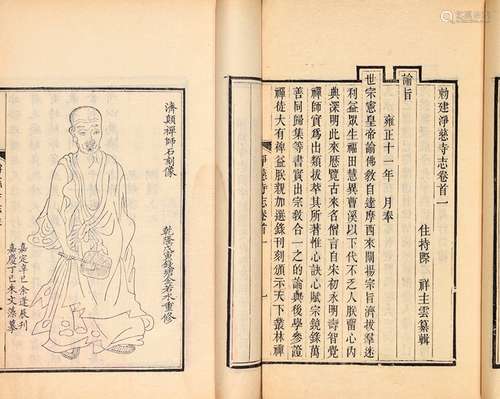 勅建淨慈寺志卷首一
住持際祥主雲纂輯
諭旨
雍正十一年 月奉
世宗憲皇帝諭佛教自達摩西來闡揚宗旨濟拔羣迷
利益眾生福田慧異曹溪以下代不乏人朕留心內
典深明此來歷覽古來名僧言自宋初永明壽智覺
禪師實為出類拔萃其所著惟心訣心賦宗鏡錄萬
善同歸集等書實出宗教合一之的論與後學參證
禪徒大有俾益朕親加選錄刊刻頒示天下叢林禪
淨慈寺志 卷首一 一
濟顛禪師石刻像
乾隆戊寅錢塘金若水重修
嘉定辛巳余蓬辰刊
嘉慶丁巳朱文藻摹